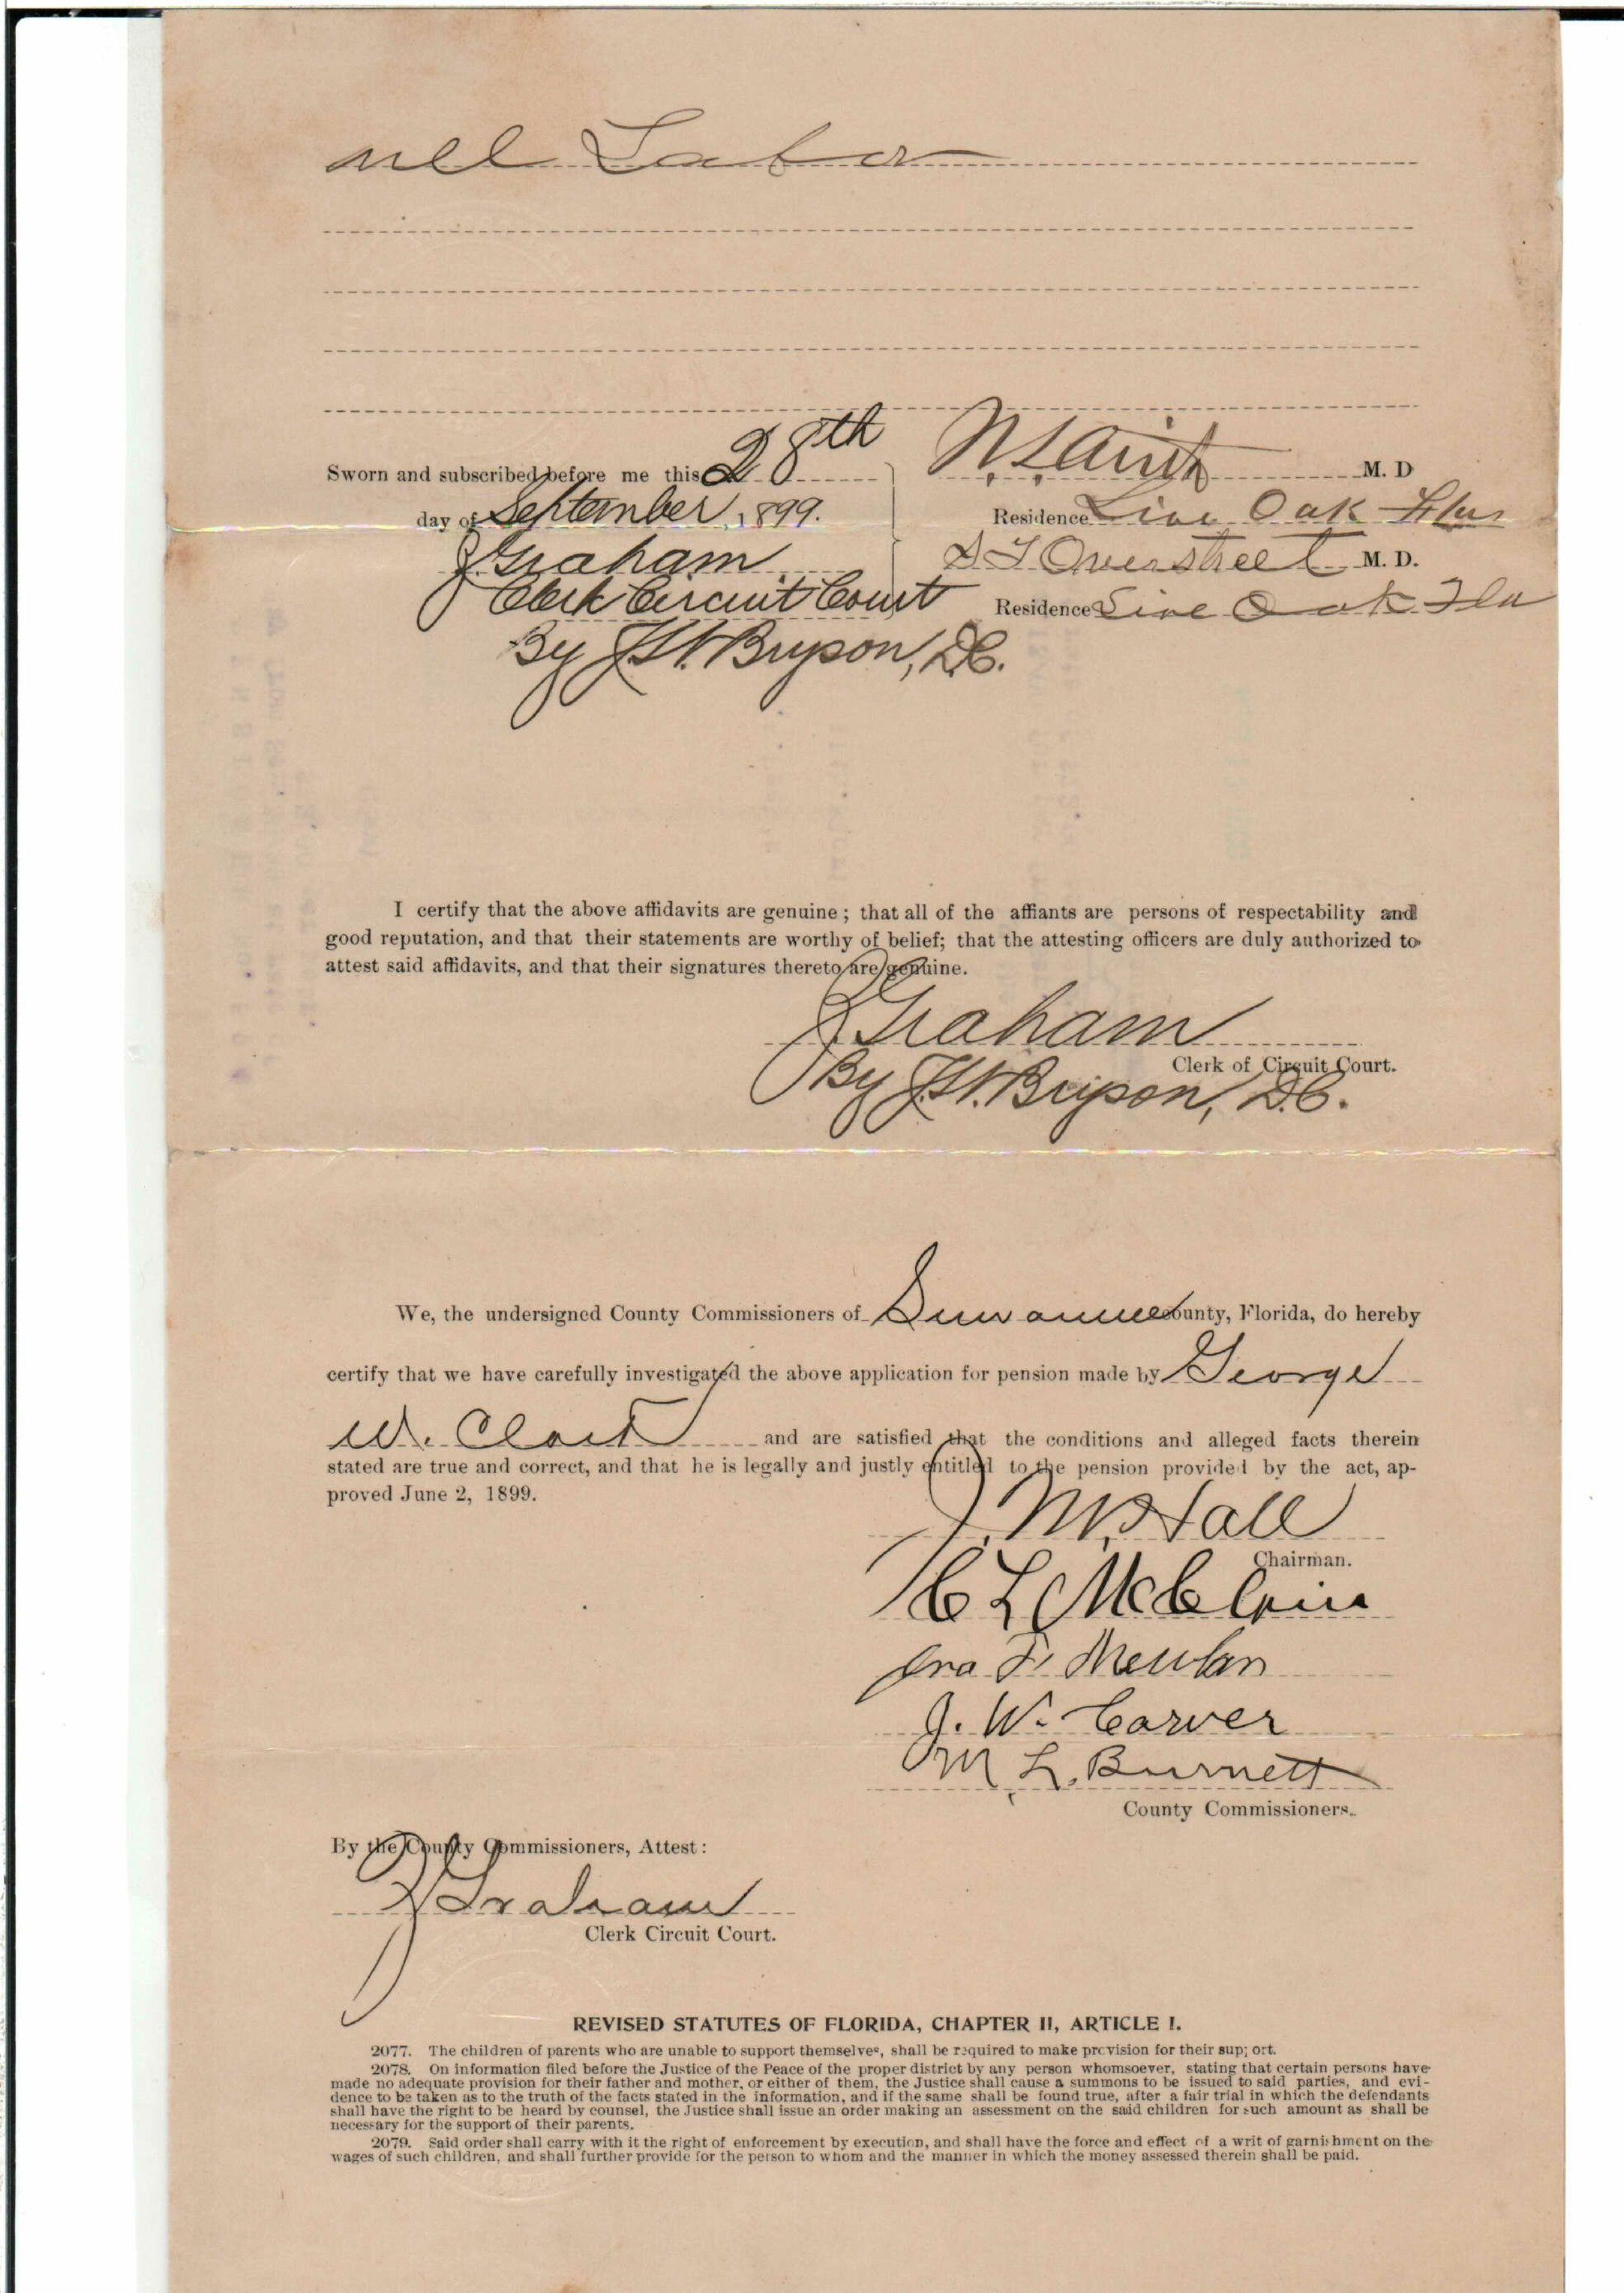 all Labor
Sworn and subscribed before me this 28th
day of September, 1899.
J Graham
Clerk Circuit Court
By J. W. Bryson, D.C.
M. D
Residence Live Oak Fla
S T Overstreet M. D.
Residence Live Oak Fla
I certify that the above affidavits are genuine; that all of the affiants are persons of respectability and
good reputation, and that their statements are worthy of belief; that the attesting officers are duly authorized to
attest said affidavits, and that their signatures thereto are genuine.
J Graham
Clerk of Circuit Court.
By J. W. Bryson, D.C.
We, the undersigned County Commissioners of Suwannee County, Florida, do hereby
certify that we have carefully investigated the above application for pension made by George
W. Clark and are satisfied that the conditions and alleged facts therein
stated are true and correct, and that he is legally and justly entitled to the pension provided by the act, ap-
proved June 2, 1899.
J. M. Hall
Chairman.
C L
J. W. Carver
M L. Burnett
County Commissioners.
By the County Commissioners, Attest:
J Graham
Clerk Circuit Court.
REVISED STATUTES OF FLORIDA, CHAPTER II, ARTICLE I.
2077. The children of parents who are unable to support themselves, shall be required to make provision for their sup; ort.
2078. On information filed before the Justice of the Peace of the proper district by any person whomsoever, stating that certain persons have
made no adequate provision for their father and mother, or either of them, the Justice shall cause a summons to be issued to said parties, and evi-
dence to be taken as to the truth of the facts stated in the information, and if the same shall be found true, after a fair trial in which the defendants
shall have the right to be heard by counsel, the Justice shall issue an order making an assessment on the said children for such amount as shall be
necessary for the support of their parents.
2079. Said order shall carry with it the right of enforcement by execution, and shall have the force and effect of a writ of garnishment on the
wages of such children, and shall further provide for the person to whom and the manner in which the money assessed therein shall be paid.